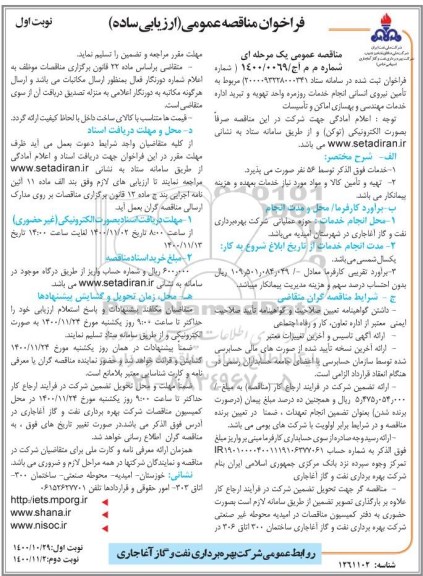 نوبت اول
فراخوان مناقصه عمومی (ارزیابی ساده)
مناقصه عمومی یک مرحله ای
شماره م م آج/۱۴۰۰/۰۰۷۹ ( شماره
فراخوان ثبت شده در سامانه ستاد ۲۰۰۰۰۹۳۲۲۸۰۰۰۳۴۱) مربوط به
تأمین نیروی انسانی انجام خدمات روزمره واحد تهویه و تبرید اداره
خدمات مهندسی و بهسازی اماکن و تأسیسات
توجه : اعلام آمادگی جهت شرکت در این مناقصه صرفاً
بصورت الکترونیکی (توکن) و از طریق سامانه ستاد به نشانی
www.setadiran.ir می باشد.
الف- شرح مختصر:
۱-خدمات فوق الذکر توسط ۵۶ نفر صورت می پذیرد.
۲- تهیه و تأمین کالا و مواد مورد نیاز خدمات بعهده و هزینه
پیمانکار می باشد.
ب-برآورد کارفرما/ محل و مدت انجام
۱-محل انجام خدمات : حوزه عملیاتی شرکت بهره‌برداری
نفت و گاز آغاجاری در شهرستان امیدیه می‌باشد.
۲- مدت انجام خدمات از تاریخ ابلاغ شروع به کار:
یکسال شمسی می‌باشد.
۳-برآورد تقریبی کارفرما معادل -/ ۱۰۹,۵۰۱,۰۸۴,۰۴۹ ریال می باشد
بدون احتساب درصد سهم و هزینه مدیریت پیمانکار میباشد.
ج - شرایط مناقصه گران متقاضی
- داشتن گواهینامه تعیین صلاحیت و گواهینامه تأیید صلاحیت
ایمنی معتبر از اداره تعاون، کار و رفاه اجتماعی
- ارائه آگهی تأسیس و آخرین تغییرات معتبر
- ارائه آخرین نسخه تأیید شده از صورت های مالی حسابرسی
شده توسط سازمان حسابرسی یا اعضای جامعه حسابداران رسمی در
هنگام انعقاد قرارداد الزامی است.
- ارائه تضمین شرکت در فرآیند ارجاع کار (مناقصه) به مبلغ
۵,۴۷۵,۰۵۴,۰۰۰ ریال و همچنین ده درصد مبلغ پیمان (درصورت
برنده شدن) بعنوان تضمین انجام تعهدات ، ضمنا در تعیین برنده
مناقصه و در شرایط برابر اولویت با شرکت های بومی می باشد.
- ارائه رسید وجه صادره از سوی حسابداری کارفرما مبنی بر واریز مبلغ
فوق الذکر به شماره حساب IR۱۹۰۱۰۰۰۰۴۰۰۱۱۱۹۱۰۶۳۷۷۰۶۱
تمرکز وجوه سپرده نزد بانک مرکزی جمهوری اسلامی ایران بنام
شرکت بهره برداری نفت و گاز آغاجاری
- مناقصه گر جهت تحویل تضمین شرکت در فرآیند ارجاع کار
علاوه بر بارگذاری تصویر تضمین از طریق سامانه لازم است بصورت
حضوری به دفتر کمیسیون مناقصات در امیدیه محوطه غیر صنعتی
شرکت بهره برداری نفت و گاز آغاجاری ساختمان ۳۰۰ اتاق ۳۰۶ در
مهلت مقرر مراجعه و تضمین را تسلیم نماید.
- متقاضی براساس ماده ۲۲ قانون برگزاری مناقصات موظف به
اعلام شماره دورنگار فعال بمنظور ارسال مکاتبات می باشد و ارسال
هرگونه مکاتبه به دورنگار اعلامی به منزله تصدیق دریافت آن از سوی
متقاضی است.
- قیمت ها متناسب با کالای ساخت داخل با لحاظ کیفیت ارائه گردد.
د- محل و مهلت دریافت اسناد
از کلیه متقاضیان واجد شرایط دعوت بعمل می آید ظرف
مهلت مقرر در این فراخوان جهت دریافت اسناد و اعلام آمادگی
از طریق سامانه ستاد به نشانی www.setadiran.ir
مراجعه نمایند تا ارزیابی های لازم وفق بند الف ماده ۱۱ آئین
نامه اجرایی بند ج ماده ۱۲ قانون برگزاری مناقصات بر روی مدارک
ارسالی مناقصه گران بعمل آید.
۱- مهلت دریافت اسناد بصورت الکترونیکی (غیر حضوری)
از ساعت ۸:۰۰ تاریخ ۱۴۰۰/۱۱/۰۲ لغایت ساعت ۱۴:۰۰ تاریخ
۱۴۰۰/۱۱/۱۳
۲- مبلغ خرید اسناد مناقصه
۶۰۰,۰۰۰ ریال و شماره حساب واریز از طریق درگاه موجود در
سامانه به نشانی www.setadiran.ir می باشد.
هـ- محل، زمان تحویل و گشایش پیشنهادها
متقاضیان مکلفند پیشنهادات و پاسخ استعلام ارزیابی خود را
حداکثر تا ساعت ۹:۰۰ روز یکشنبه مورخ ۱۴۰۰/۱۱/۲۴ به صورت
الکترونیکی و از طریق سامانه ستاد تسلیم نمایند.
ضمناً پیشنهادات در همان روز یکشنبه مورخ ۱۴۰۰/۱۱/۲۴
گشایش و قرائت خواهد شد و حضور نماینده مناقصه گران یا معرفی
نامه و کارت شناسایی معتبر بلامانع است.
ضمناً مهلت و محل تحویل تضمین شرکت در فرآیند ارجاع کار
حداکثر تا ساعت ۹:۰۰ روز یکشنبه مورخ ۱۴۰۰/۱۱/۲۴ در محل
کمیسیون مناقصات شرکت بهره برداری نفت و گاز آغاجاری در
آدرس فوق الذکر می باشد.درصورت تغییر تاریخ های فوق ، به
مناقصه گران اطلاع رسانی خواهد شد.
همزمان ارائه معرفی نامه و کارت ملی برای متقاضیان شرکت در
مناقصه و نمایندگان شرکتها در همه مراحل لازم و ضروری می باشد.
نشانی: خوزستان- امیدیه- محوطه صنعتی- ساختمان ۳۰۰-
اتاق ۳۰۳- امور حقوقی و قراردادها تلفن ۰۶۱۵۲۶۲۷۷۰۱
http://iets.mporg.ir
www.shana.ir
www.nisoc.ir
نوبت اول: ۱۴۰۰/۱۰/۲۹
نوبت دوم: ۱۴۰۰/۱۱/۲
روابط عمومی شرکت بهره برداری نفت و گاز آغاجاری
شناسه: ۱۲۶۱۱۰۲